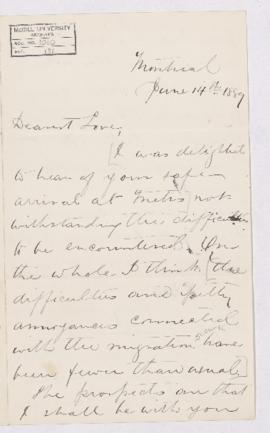 McGILL UNIVERSITY
ARCHIVES
ACC. NO.
REF.
Montreal
June 14th 1889
Dearest Love,
I was delighted
to hear of your safe
arrival at Metis not-
withstanding the difficulties
to be encountered. On
the whole I think the
difficulties and petty
annoyances connected
with the migration have
been fewer than usual.
The prospects are that
I shall be with you